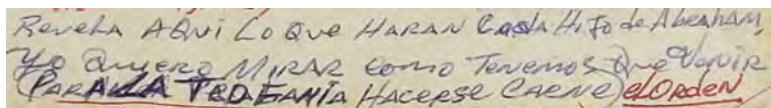 Revela AQui Lo Que HARAN Cada Hijo de Abraham,
Yo Quiero MIRAR como Tenemos Que Venir
(PARA LA TEOFANIA HACERSE CARNE) el ORDEN